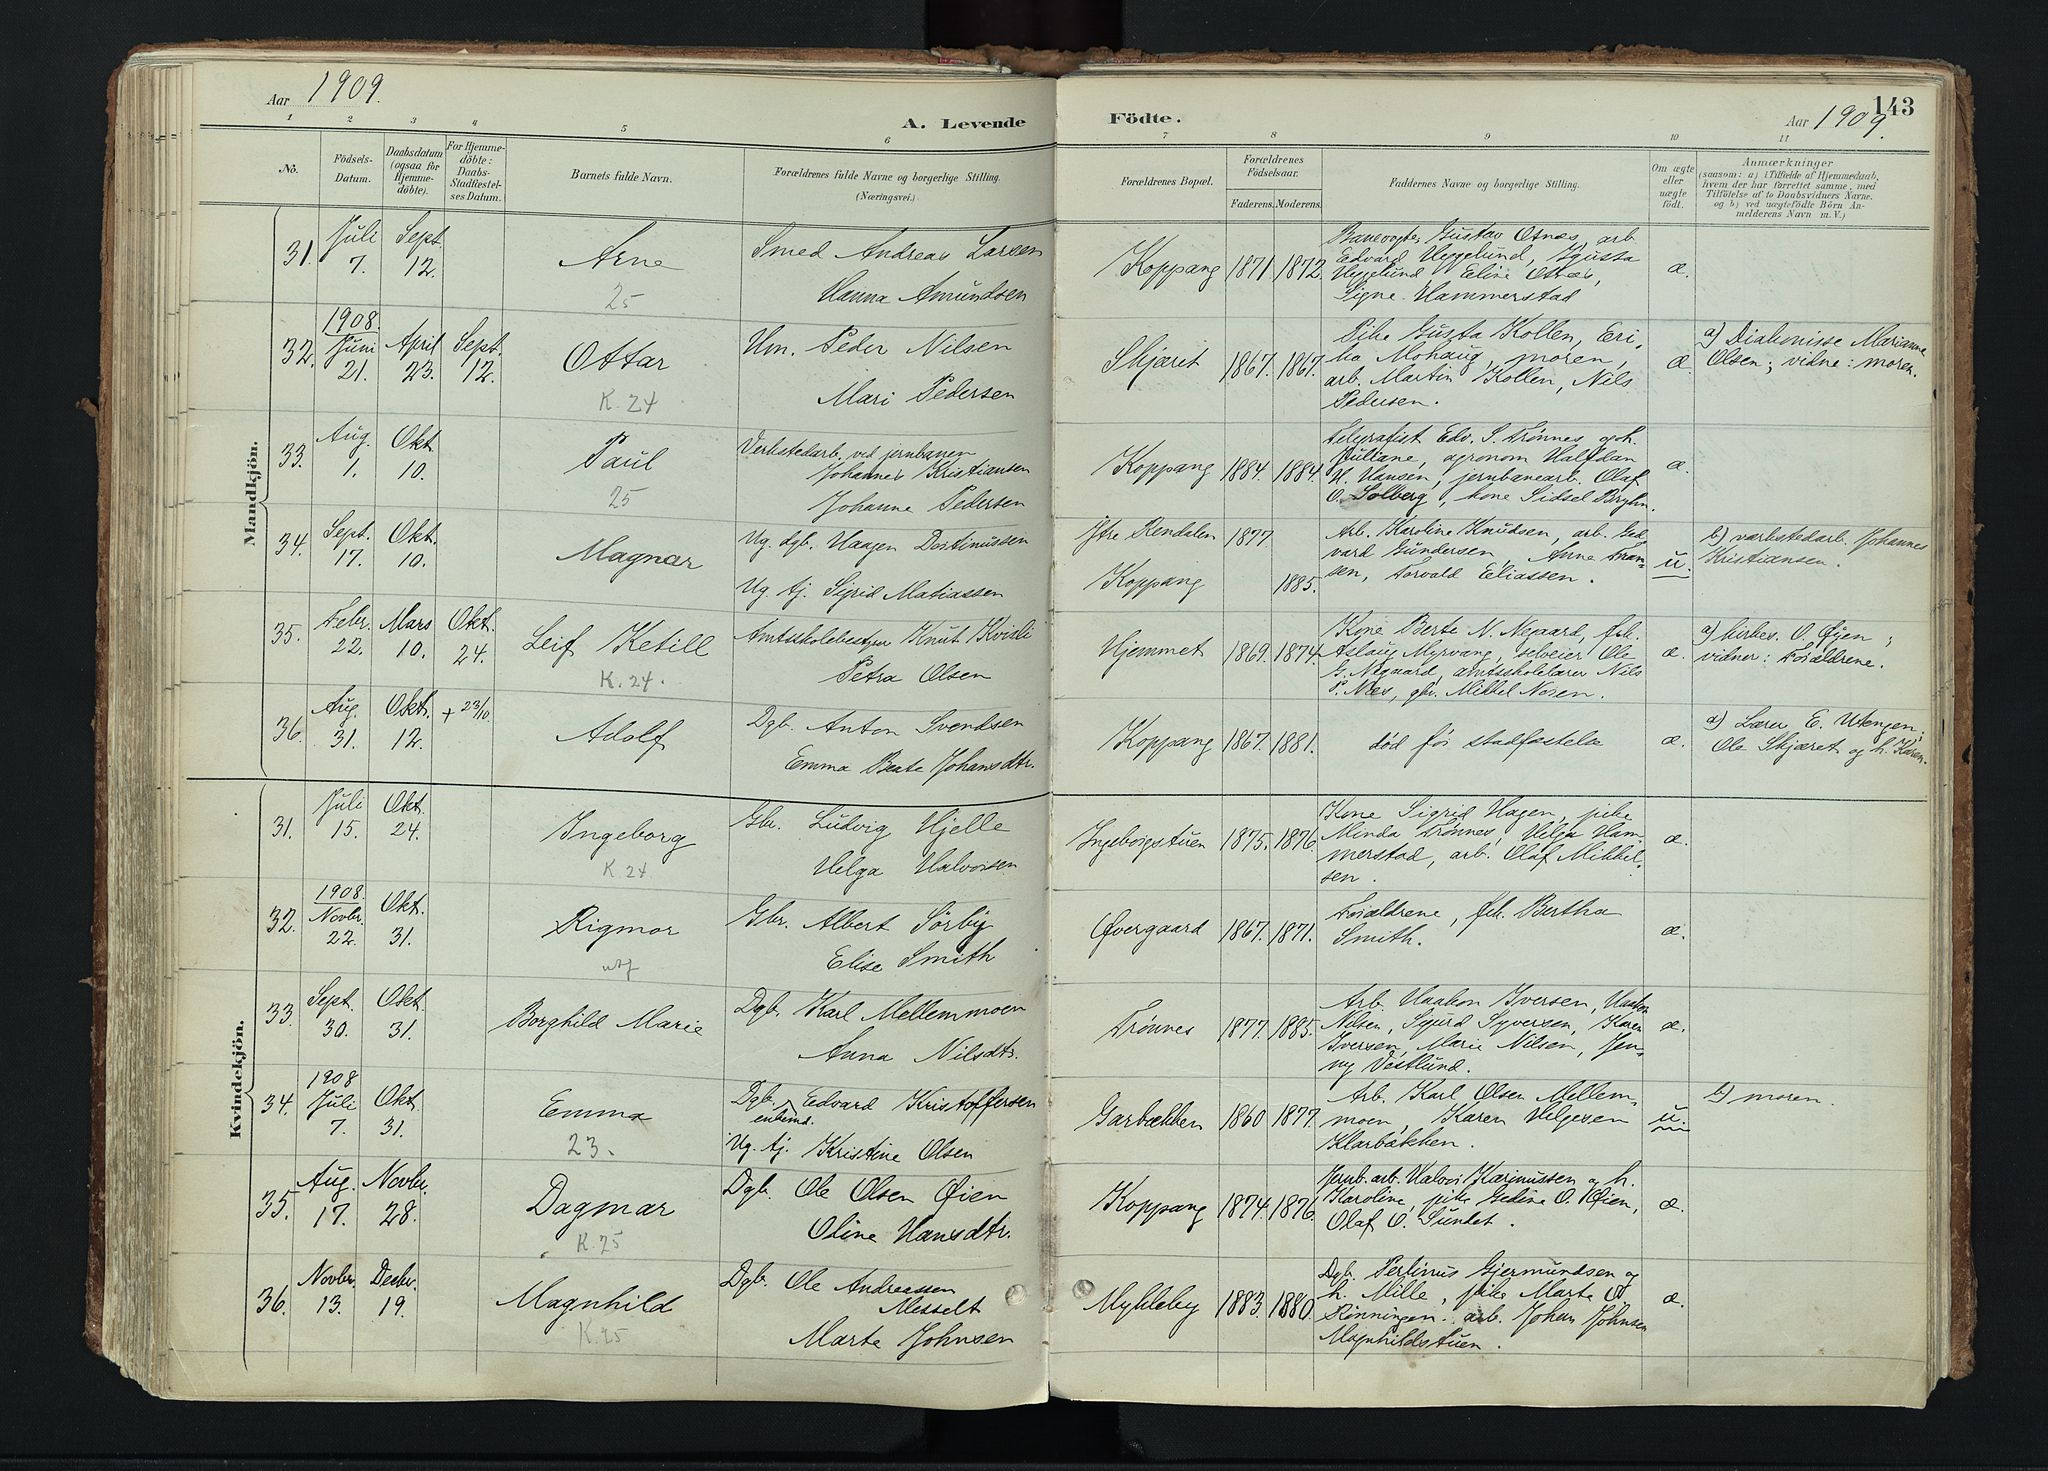 Aar 1909.
A. Levende Födte.
Aar 1909.
143
1 2 3 4 5 6 7 8 9 10 11
No.
Födsels-Datum.
Daabsdatum (ogsaa for Hjemmedöbte).
For Hjemmedöbte: Daabs-Stadfæstelses Datum.
Barnets fulde Navn.
Forældrenes fulde Navne og borgerlige Stilling.
(Næringsvei.)
Forældrenes Bopæl.
Forældrenes Födselsaar.
Faderens. Moderens.
Faddernes Navne og borgerlige Stilling.
Om ægte eller uægte födt.
Anmærkninger
(saasom: a) i Tilfælde af Hjemmedaab, hvem der har forrettet samme, med Tilföielse af to Daabsvidners Navne, og b) ved uægtefödte Börn Anmelderens Navn m. V.)
Mandkjön.
31. Juli 7. Sept. 12. Arne 25
Smed Andreas Larsen
Hanna Amundsen
Koppang 1871 1872.
Banevogter Gustav Otnæs, arb.
Edvard Heggelund, Gusta
Heggelund Eline Otnæs,
Signe Hammerstad
æ.
32. 1908. Juni 21. April 23. Sept. 12. Ottar K. 24
Um. Peder Nilsen
Mari Pedersen
Skjæret 1867. 1867.
Pike Gusta Kollen, Eri-
ka Mohaug, moren,
arb. Martin Kollen, Nils
Pedersen.
æ.
a) Diakonisse Marianne
Olsen; vidne: moren.
33. Aug. 1. Okt. 10. Paul 25
Verkstedarb. ved jernbanen
Johannes Kristiansen
Johanne Pedersen
Koppang 1884. 1884.
Telegrafist Edv. S. Trønnes og h.
Juliane, agronom Halfdan
H. Hansen, jernbanearb. Olaf
O. Solberg, kone Sidsel
æ.
34. Sept. 17. Okt. 10. Magnar
Ug. dgb. Haagen Dortinussen
Ug. tj. Sigrid Matiassen
Ytre Rendalen 1877
Koppang 1885.
Arb. Karoline Knudsen, arb. Ed-
vard Gundersen, Anne Fran-
sen, Torvald Eliassen.
u.
b) værkstedarb. Johannes
Kristiansen.
35. Febr. 22. Mars 10. Okt. 24. Leif Ketill K. 24.
Amtsskolebestyrer Knut Kvisli
Petra Olsen
Hjemmet 1869. 1874.
Kone Berte N. Negaard, frk.
Aslaug Myrvang, selveier Ole
G. Negaard, amtsskolelærer Nils
P. Næs, gbr. Mikkel Noren.
æ.
a) kirkes. O. Øyen;
vidner: Forældrene.
36. Aug. 31. Okt. 12. + 23/10. Adolf
Dgb. Anton Svendsen
Emma Beate Johansdtr.
Koppang 1867. 1881.
død før stadfæstelse
æ.
a) Lærer E. Utengen;
Ole Skjæret og h. Karen.
Kvindekjön.
31. Juli 15. Okt. 24. Ingeborg K. 24
Gbr. Ludvig Hjelle
Helga Halvorsen
Ingeborgstuen 1875. 1876.
Kone Sigrid Hagen, pike
Minda Trønnes, Helga Ham-
merstad, arb. Olaf Mikkel-
sen.
æ.
32. 1908. Novbr. 22. Okt. 31. Rigmor utf
Gbr. Albert Sörby
Elise Smith
Øvergaard 1867. 1871.
Forældrene, frk. Bertha
Smith.
æ.
33. Sept. 30. Okt. 31. Borghild Marie
Dgb. Karl Mellemmoen
Anna Nilsdtr.
Trönnes 1877. 1885.
Arb. Haakon Iversen, Haakon
Nilsen, Sigurd Syversen, Karen
Iversen, Marie Nilsen, Jen-
ny Vestlund.
æ.
34. 1908 Juli 7. Okt. 31. Emma 23.
Dgb. enkemd. Edvard Kristoffersen
Ug. tj. Kristine Olsen
Garbækken 1860 1877.
Arb. Karl Olsen Mellem-
moen, Karen Helgesen
Klarbækken.
u.
b) moren.
35. Aug. 17. Novbr. 28. Dagmar K. 25
Dgb. Ole Olsen Øien
Oline Hansdtr.
Koppang 1874. 1876.
Jernb.arb. Halvor Rasmussen og h.
Karoline, pike Gedine O. Øien,
Olaf O. Sundet.
æ.
36. Novbr. 13. Decbr. 19. Magnhild K. 25
Dgb. Ole Andreassen
Messelt
Marte Johnsen
Mykleby 1883. 1880.
Dgb. Perlinus Gjermundsen og
h. Mille, pike Marte O
Rönningen, arb. Johan Johnsen
Magnhildstuen.
æ.